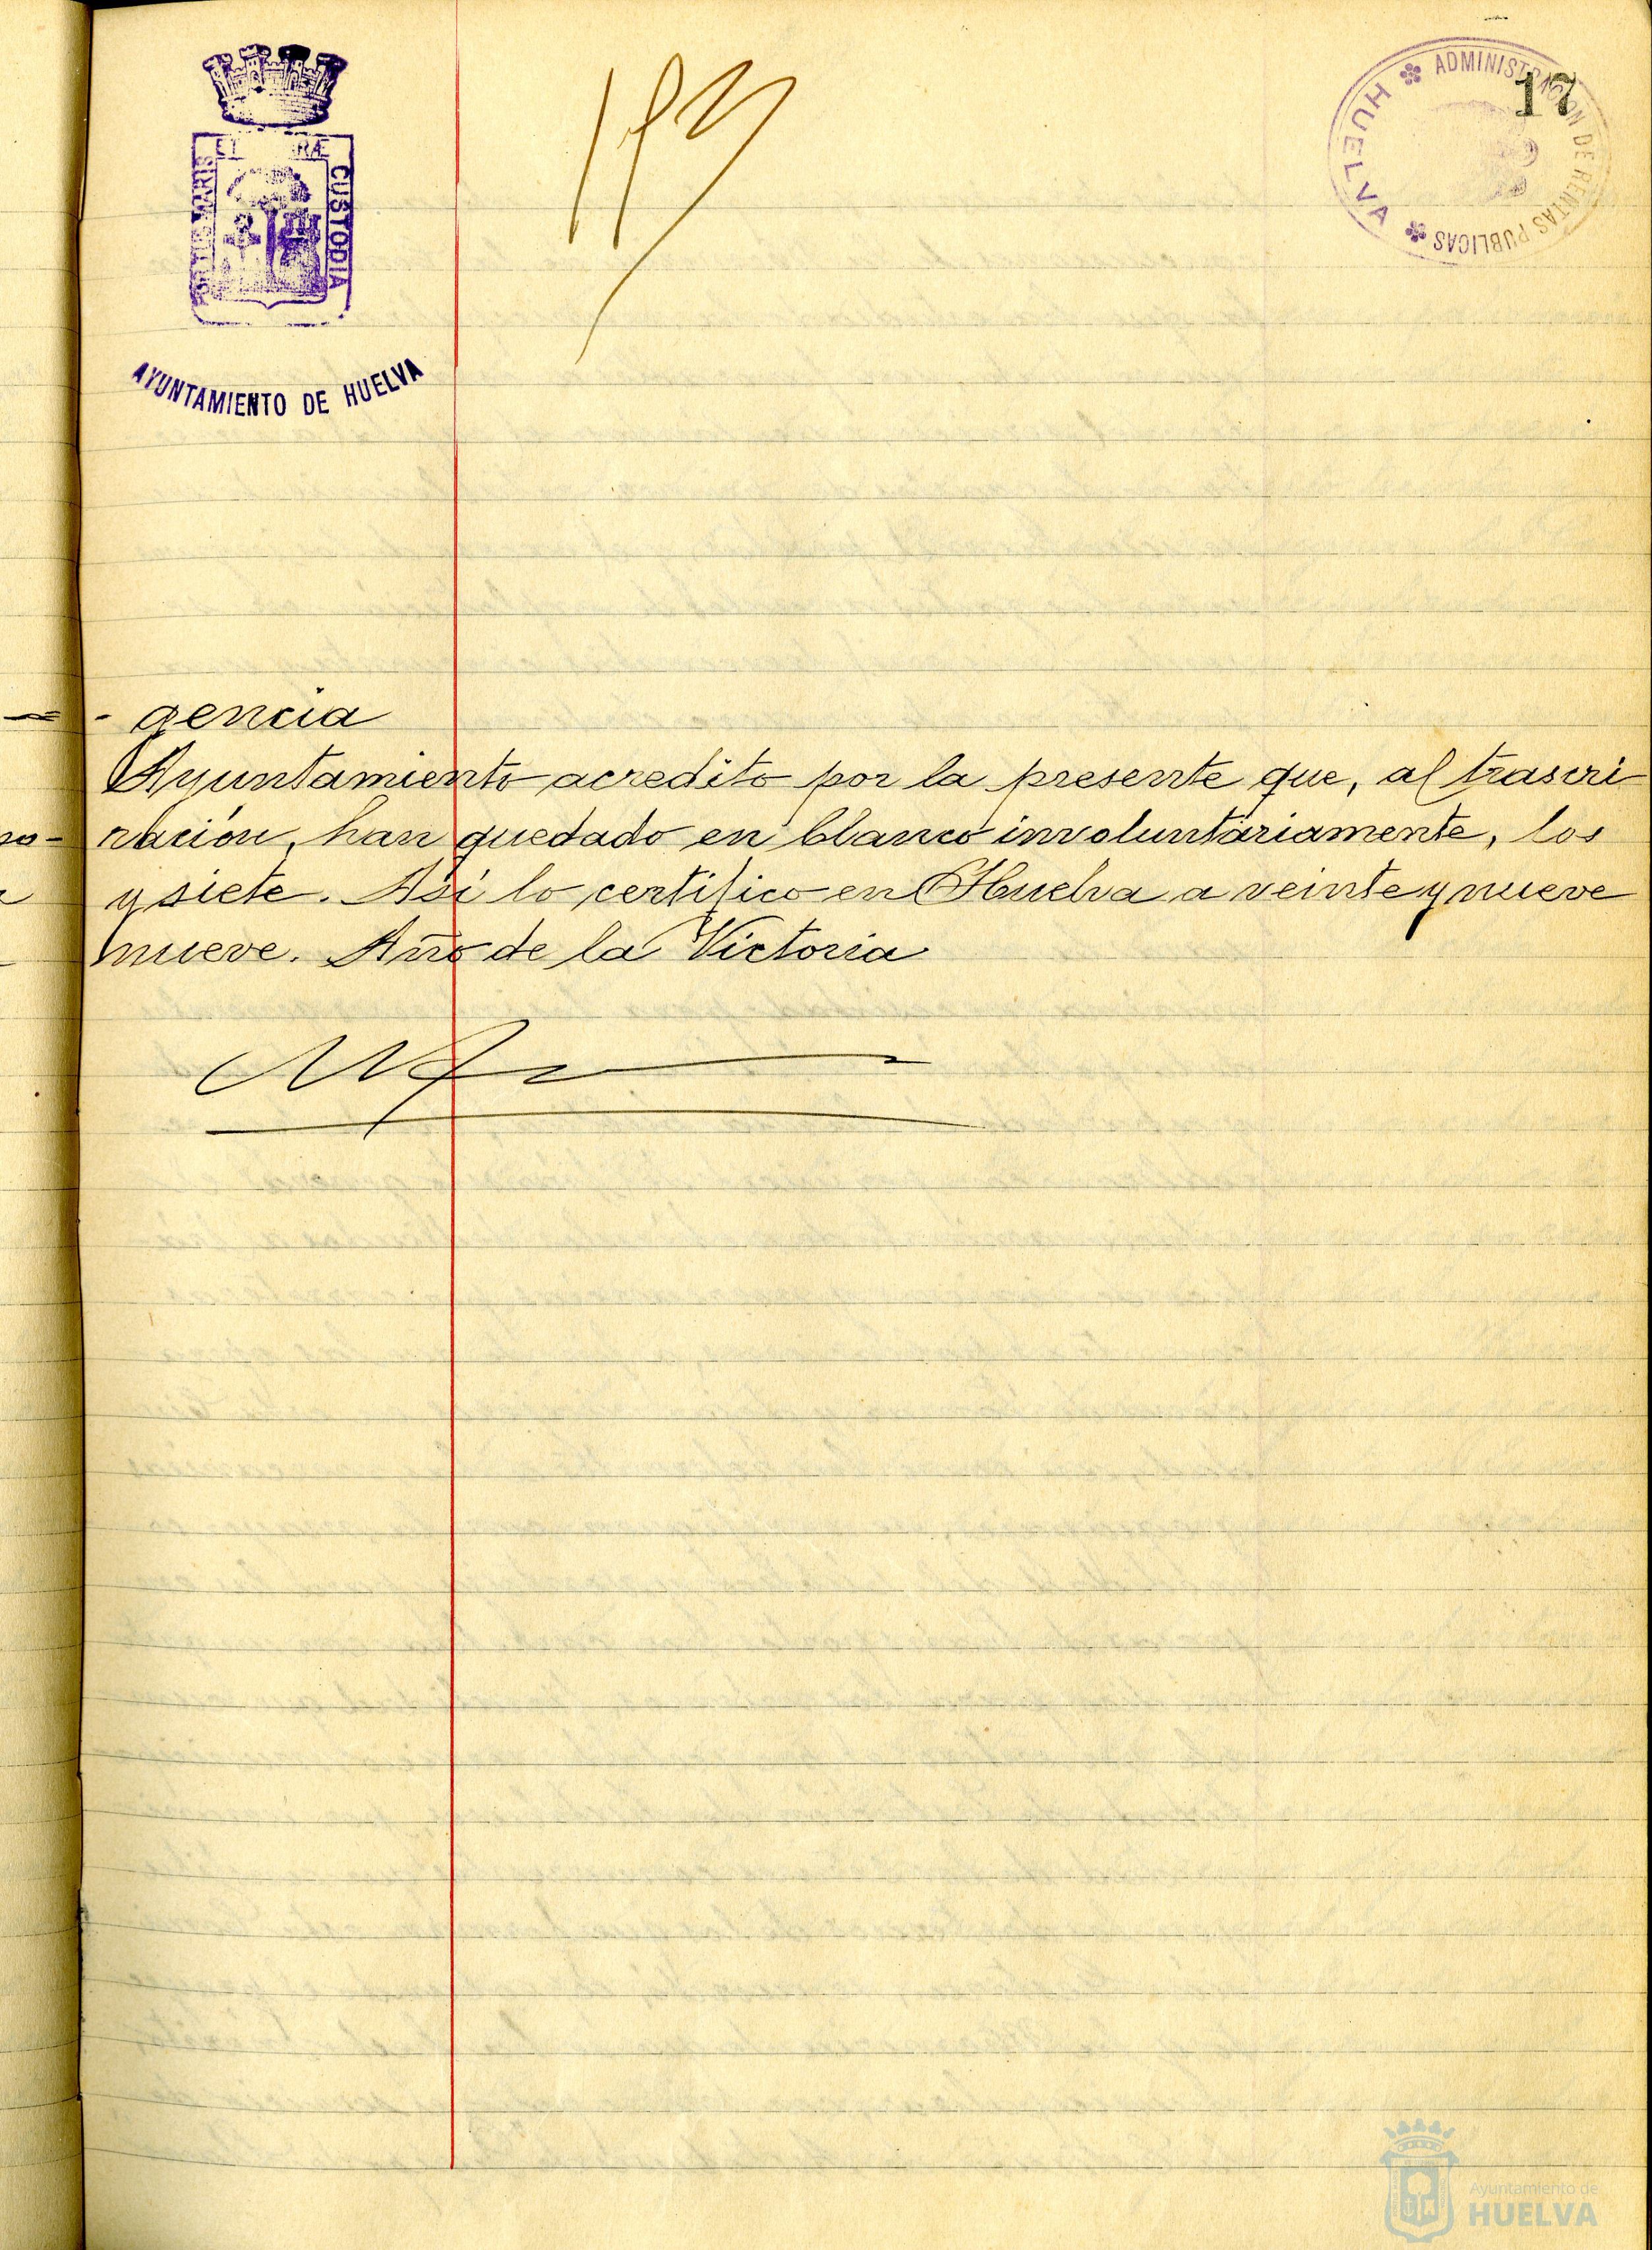 PORTUS MARIS
ET
TERRÆ
CUSTODIA
AYUNTAMIENTO DE HUELVA
ADMINISTRACION DE RENTAS PUBLICAS
HUELVA
17
- gencia
Ayuntamiento acredito por la presente que, al trascri
ración, han quedado en blanco involuntariamente, los
y siete. Así lo certifico en Huelva a veinte y nueve
nueve. Año de la Victoria
Ayuntamiento de
HUELVA